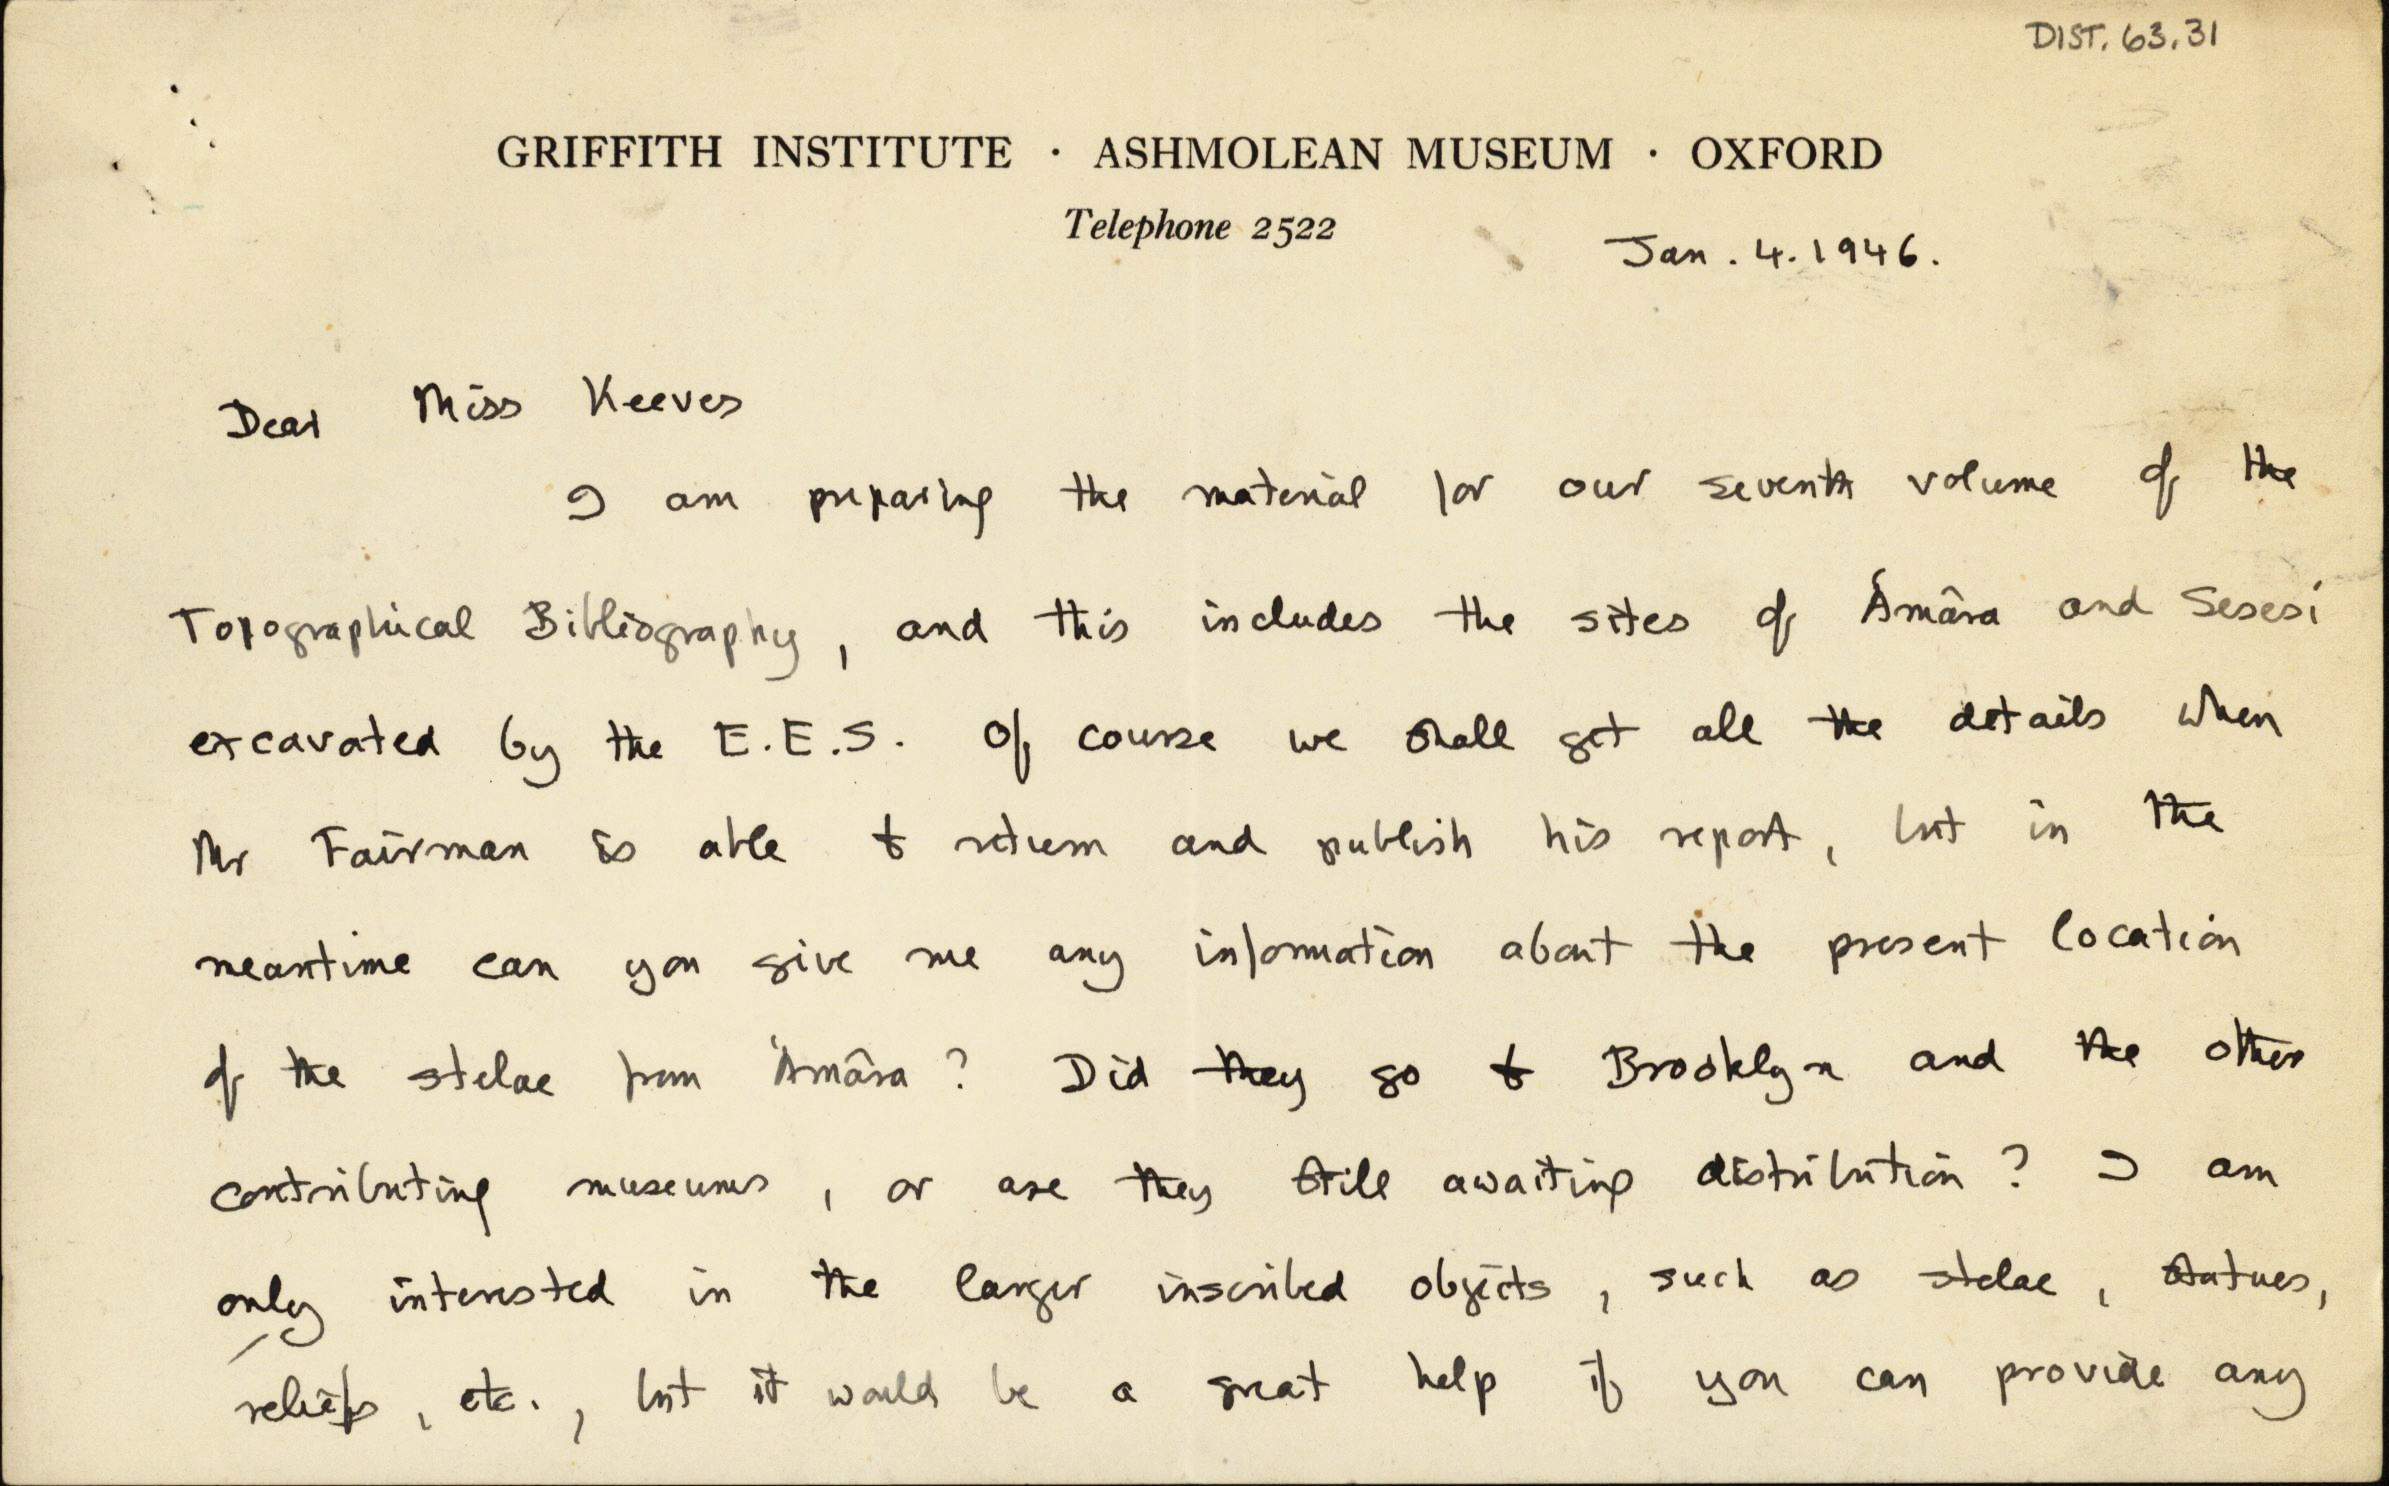 DIST. 63.31
GRIFFITH INSTITUTE · ASHMOLEAN MUSEUM · OXFORD
Telephone 2522
Jan. 4. 1946.
Dear Miss Keeves
I am preparing the material for our seventh volume of the
Topographical Bibliography, and this includes the sites of ʿAmâra and Sesesi
excavated by the E.E.S. Of course we shall get all the details when
Mr Fairman is able to return and publish his report, but in the
meantime can you give me any information about the present location
of the stelae from ʿAmâra? Did they go to Brooklyn and the other
contributing museums, or are they still awaiting distribution? I am
only interested in the larger inscribed objects, such as stelae, statues,
reliefs, etc., but it would be a great help if you can provide any